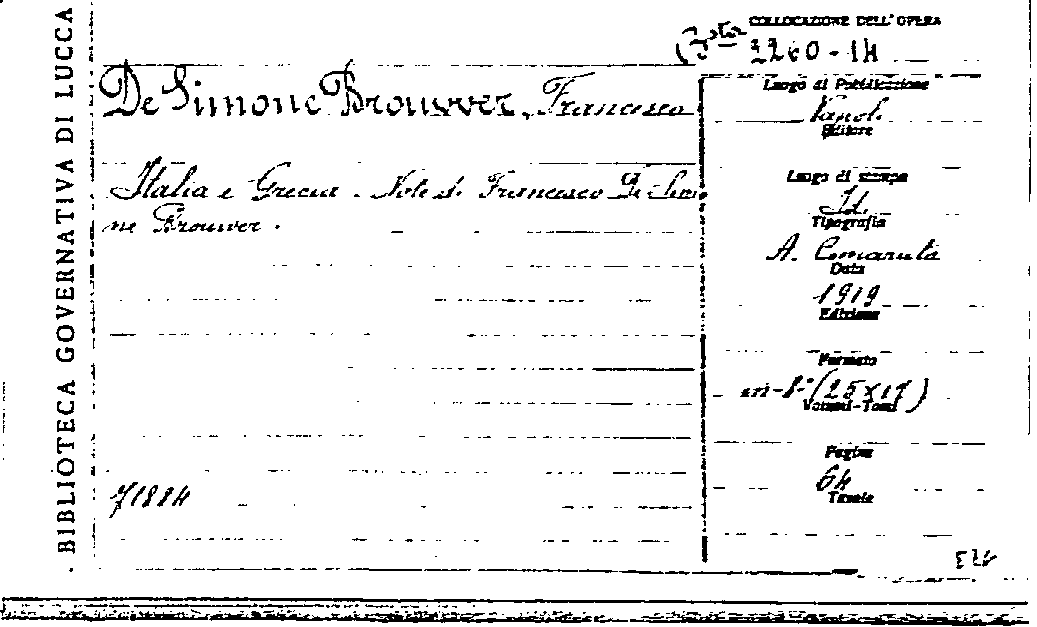 BIBLIOTECA GOVERNATIVA DI LUCCA
COLLOCAZIONE DELL'OPERA
(Bta 3260-14
De Simone Brouwer, Francesco
Italia e Grecia. Note di Francesco De Simo
ne Brouwer.
71884
Luogo di Pubblicazione
Napoli
Editore
Luogo di stampa
Id.
Tipografia
A. Cimaruta
Data
1919
Edizione
Formato
in-8° (25x17)
Volumi-Tomi
Pagine
64
Tavole